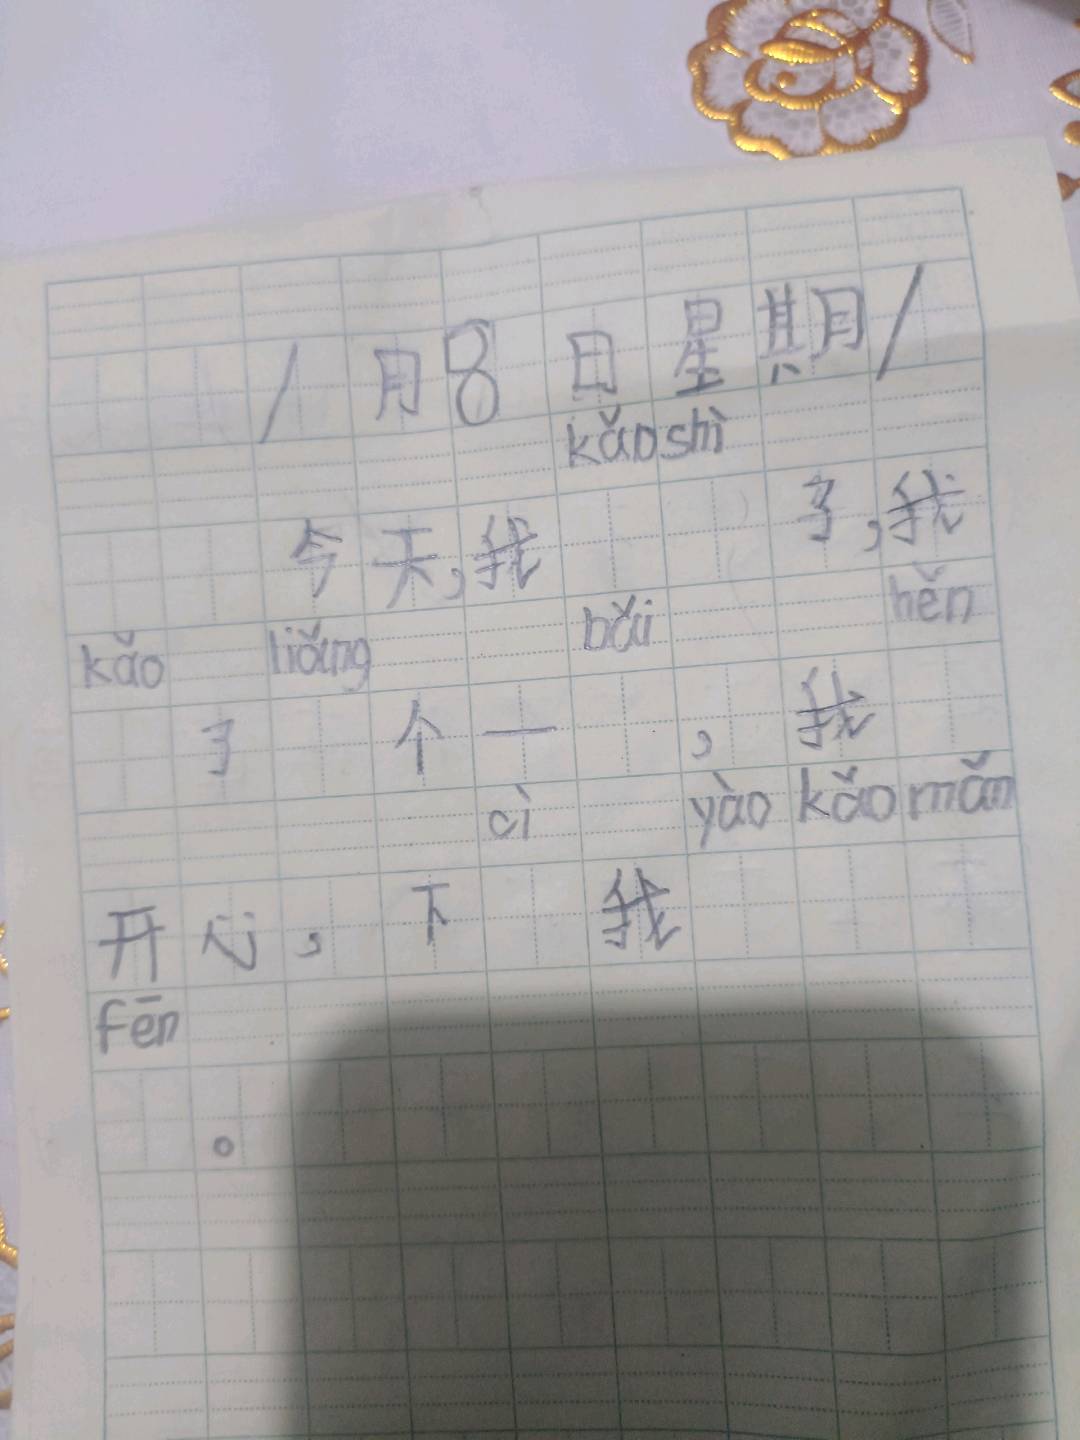 1月8日星期1
kǎo shì
今天,我 了,我
kǎo liǎng bǎi hěn
了 个一 , 我
cì yào kǎo mǎn
开心, 下 我
fēn
。